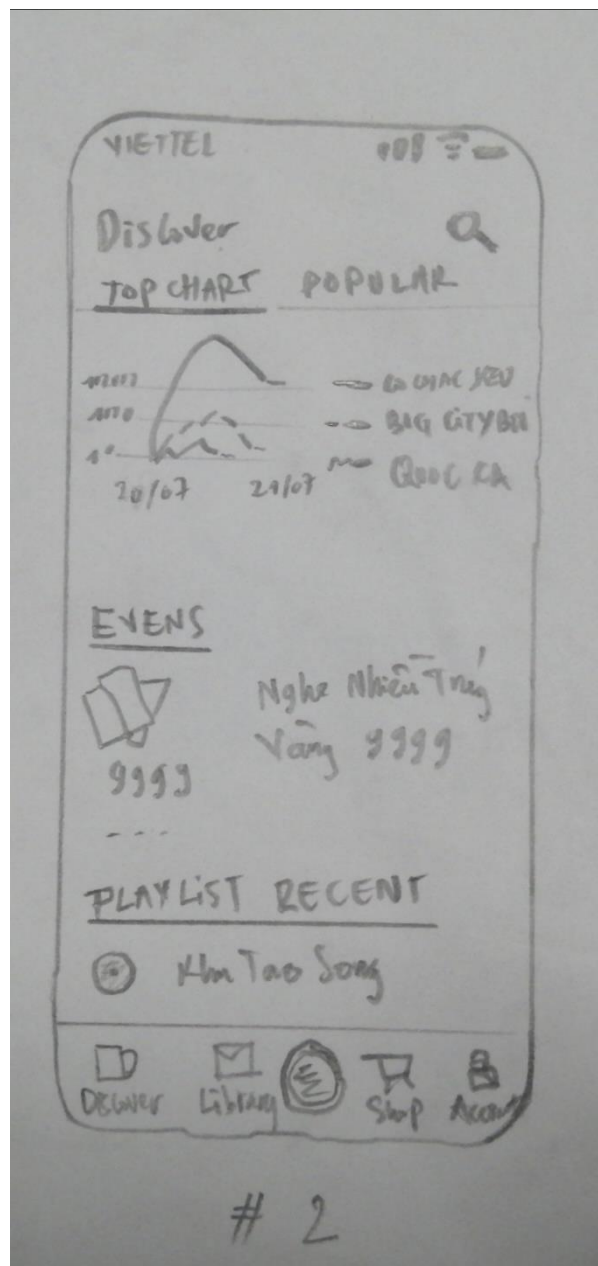 VIETTEL
Discover
TOP CHART POPULAR
BIG CITYBOI
QUOC CA
20/07 21/07
EVENS
Nghe Nhiều Trúng
Vàng 9999
9999
PLAYLIST RECENT
Khu Tao Song
Discover Library Shop Account
# 2